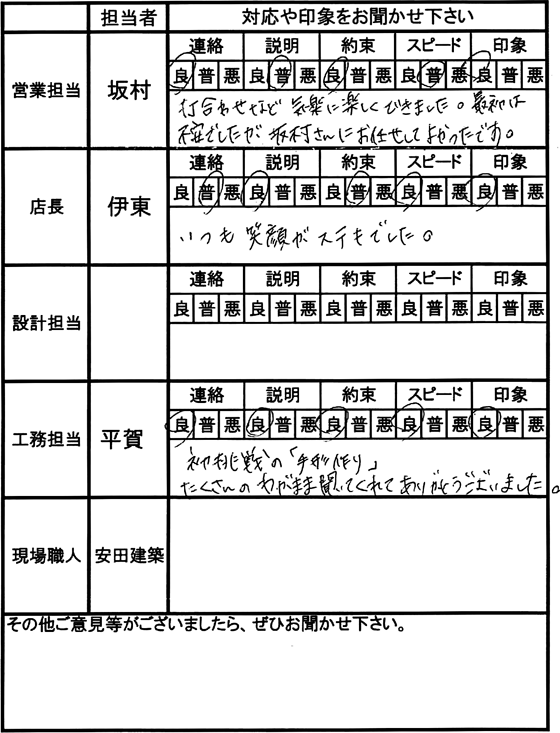 担当者 対応や印象をお聞かせ下さい
営業担当 坂村
連絡 説明 約束 スピード 印象
良 普 悪 良 普 悪 良 普 悪 良 普 悪 良 普 悪
打合わせなど 気楽に楽しくできました。最初は
不安でしたが 坂村さんにお任せしてよかったです。
店長 伊東
連絡 説明 約束 スピード 印象
良 普 悪 良 普 悪 良 普 悪 良 普 悪 良 普 悪
いつも 笑顔がステキでした。
設計担当
連絡 説明 約束 スピード 印象
良 普 悪 良 普 悪 良 普 悪 良 普 悪 良 普 悪
工務担当 平賀
連絡 説明 約束 スピード 印象
良 普 悪 良 普 悪 良 普 悪 良 普 悪 良 普 悪
初挑戦の「手形作り」
たくさんの わがまま聞いてくれてありがとうございました。
現場職人 安田建築
その他ご意見等がございましたら、ぜひお聞かせ下さい。